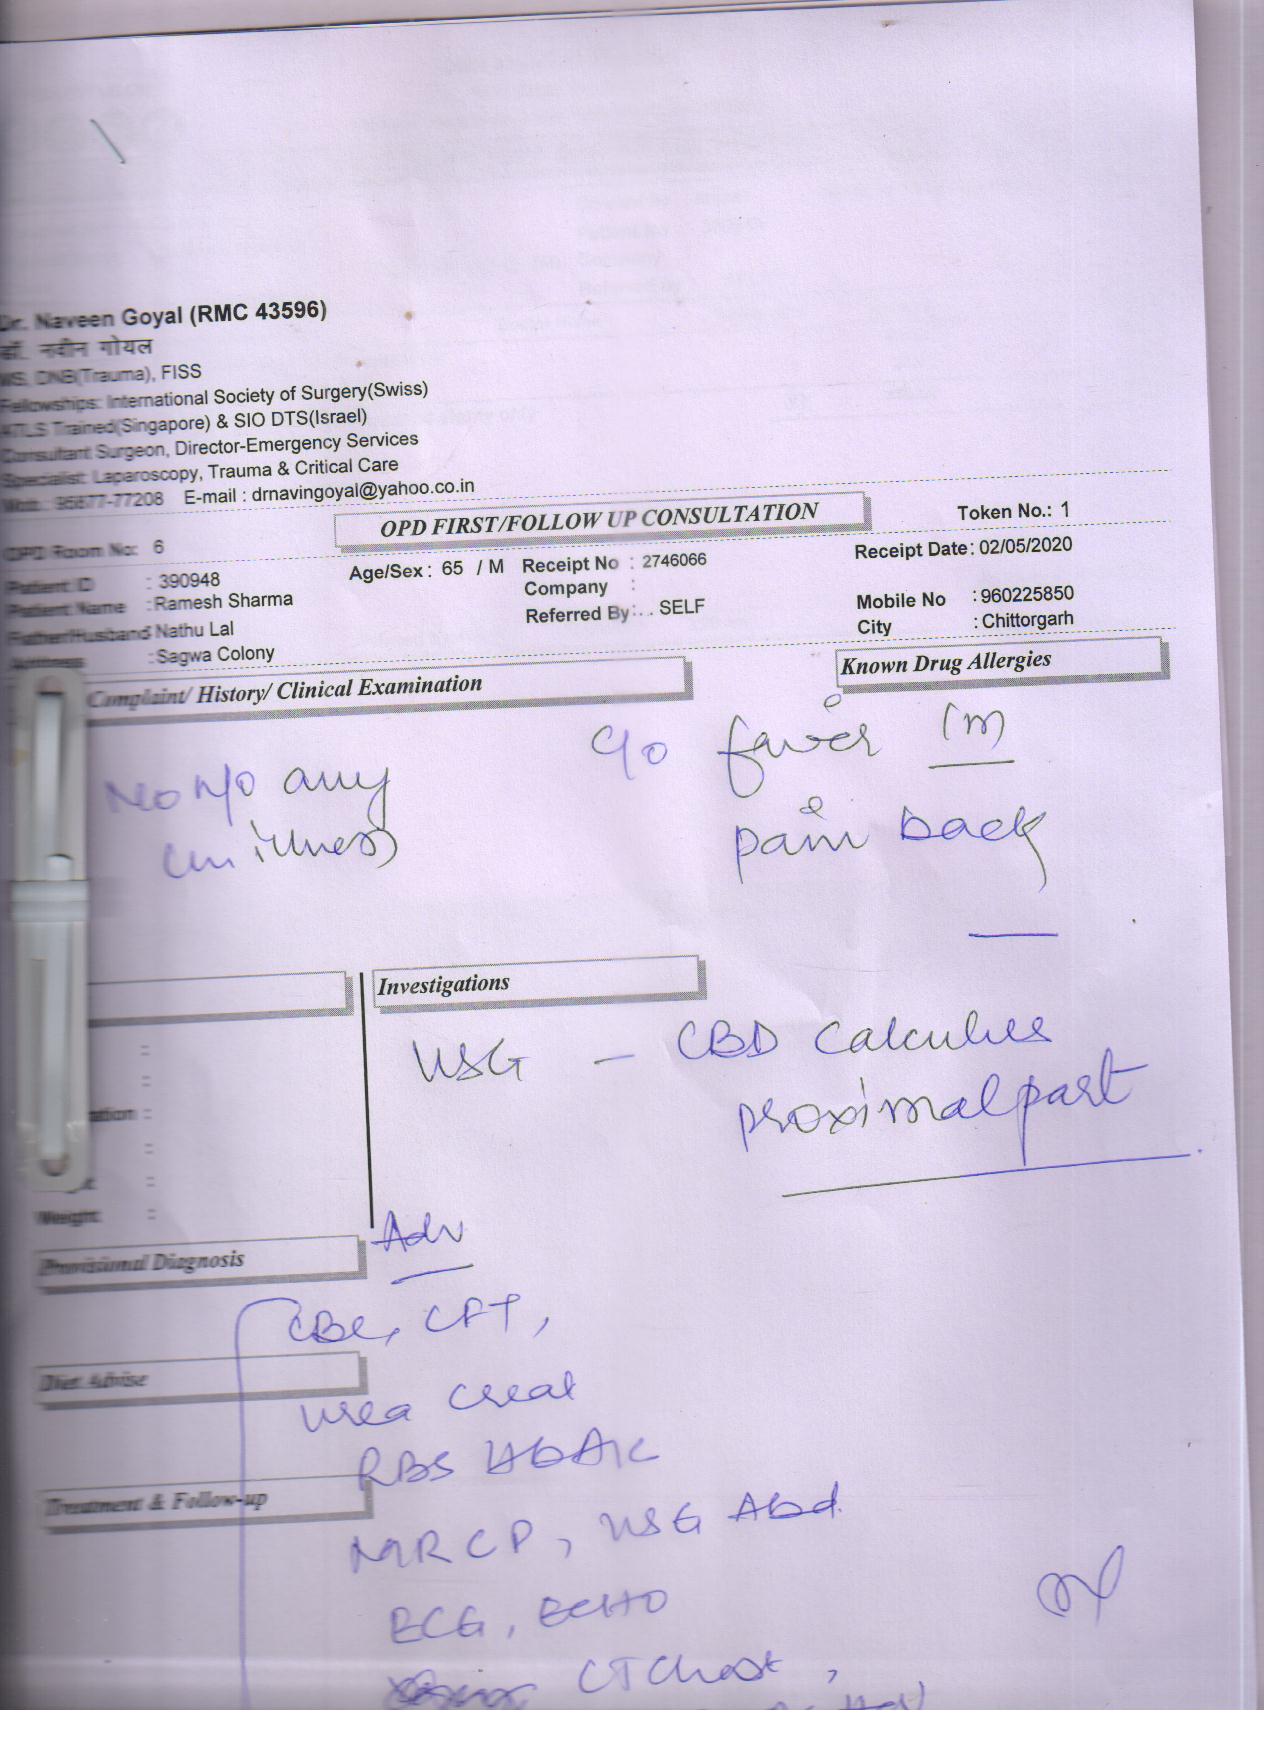 Dr. Naveen Goyal (RMC 43596)
डॉ. नवीन गोयल
MS, DNB(Trauma), FISS
Fellowships: International Society of Surgery(Swiss)
ATLS Trained(Singapore) & SIO DTS(Israel)
Consultant Surgeon, Director-Emergency Services
Specialist: Laparoscopy, Trauma & Critical Care
Mob.: 95877-77208 E-mail : drnavingoyal@yahoo.co.in
OPD FIRST/FOLLOW UP CONSULTATION
Token No.: 1
OPD Room No: 6
Patient ID : 390948 Age/Sex : 65 / M Receipt No : 2746066 Receipt Date: 02/05/2020
Patient Name : Ramesh Sharma Company :
Father/Husband: Nathu Lal Referred By: . . SELF Mobile No : 960225850
Address : Sagwa Colony City : Chittorgarh
Complaint/ History/ Clinical Examination
Known Drug Allergies
No H/O any
illness
C/o fever 1m
pain back
Investigations
USG - CBD Calculus
proximal part
Weight :
Provisional Diagnosis
Adv
CBC, LFT,
Diet Advise
urea creat
RBS HbA1C
Treatment & Follow-up
MRCP, USG Abd.
ECG, ECHO
CT Chest,